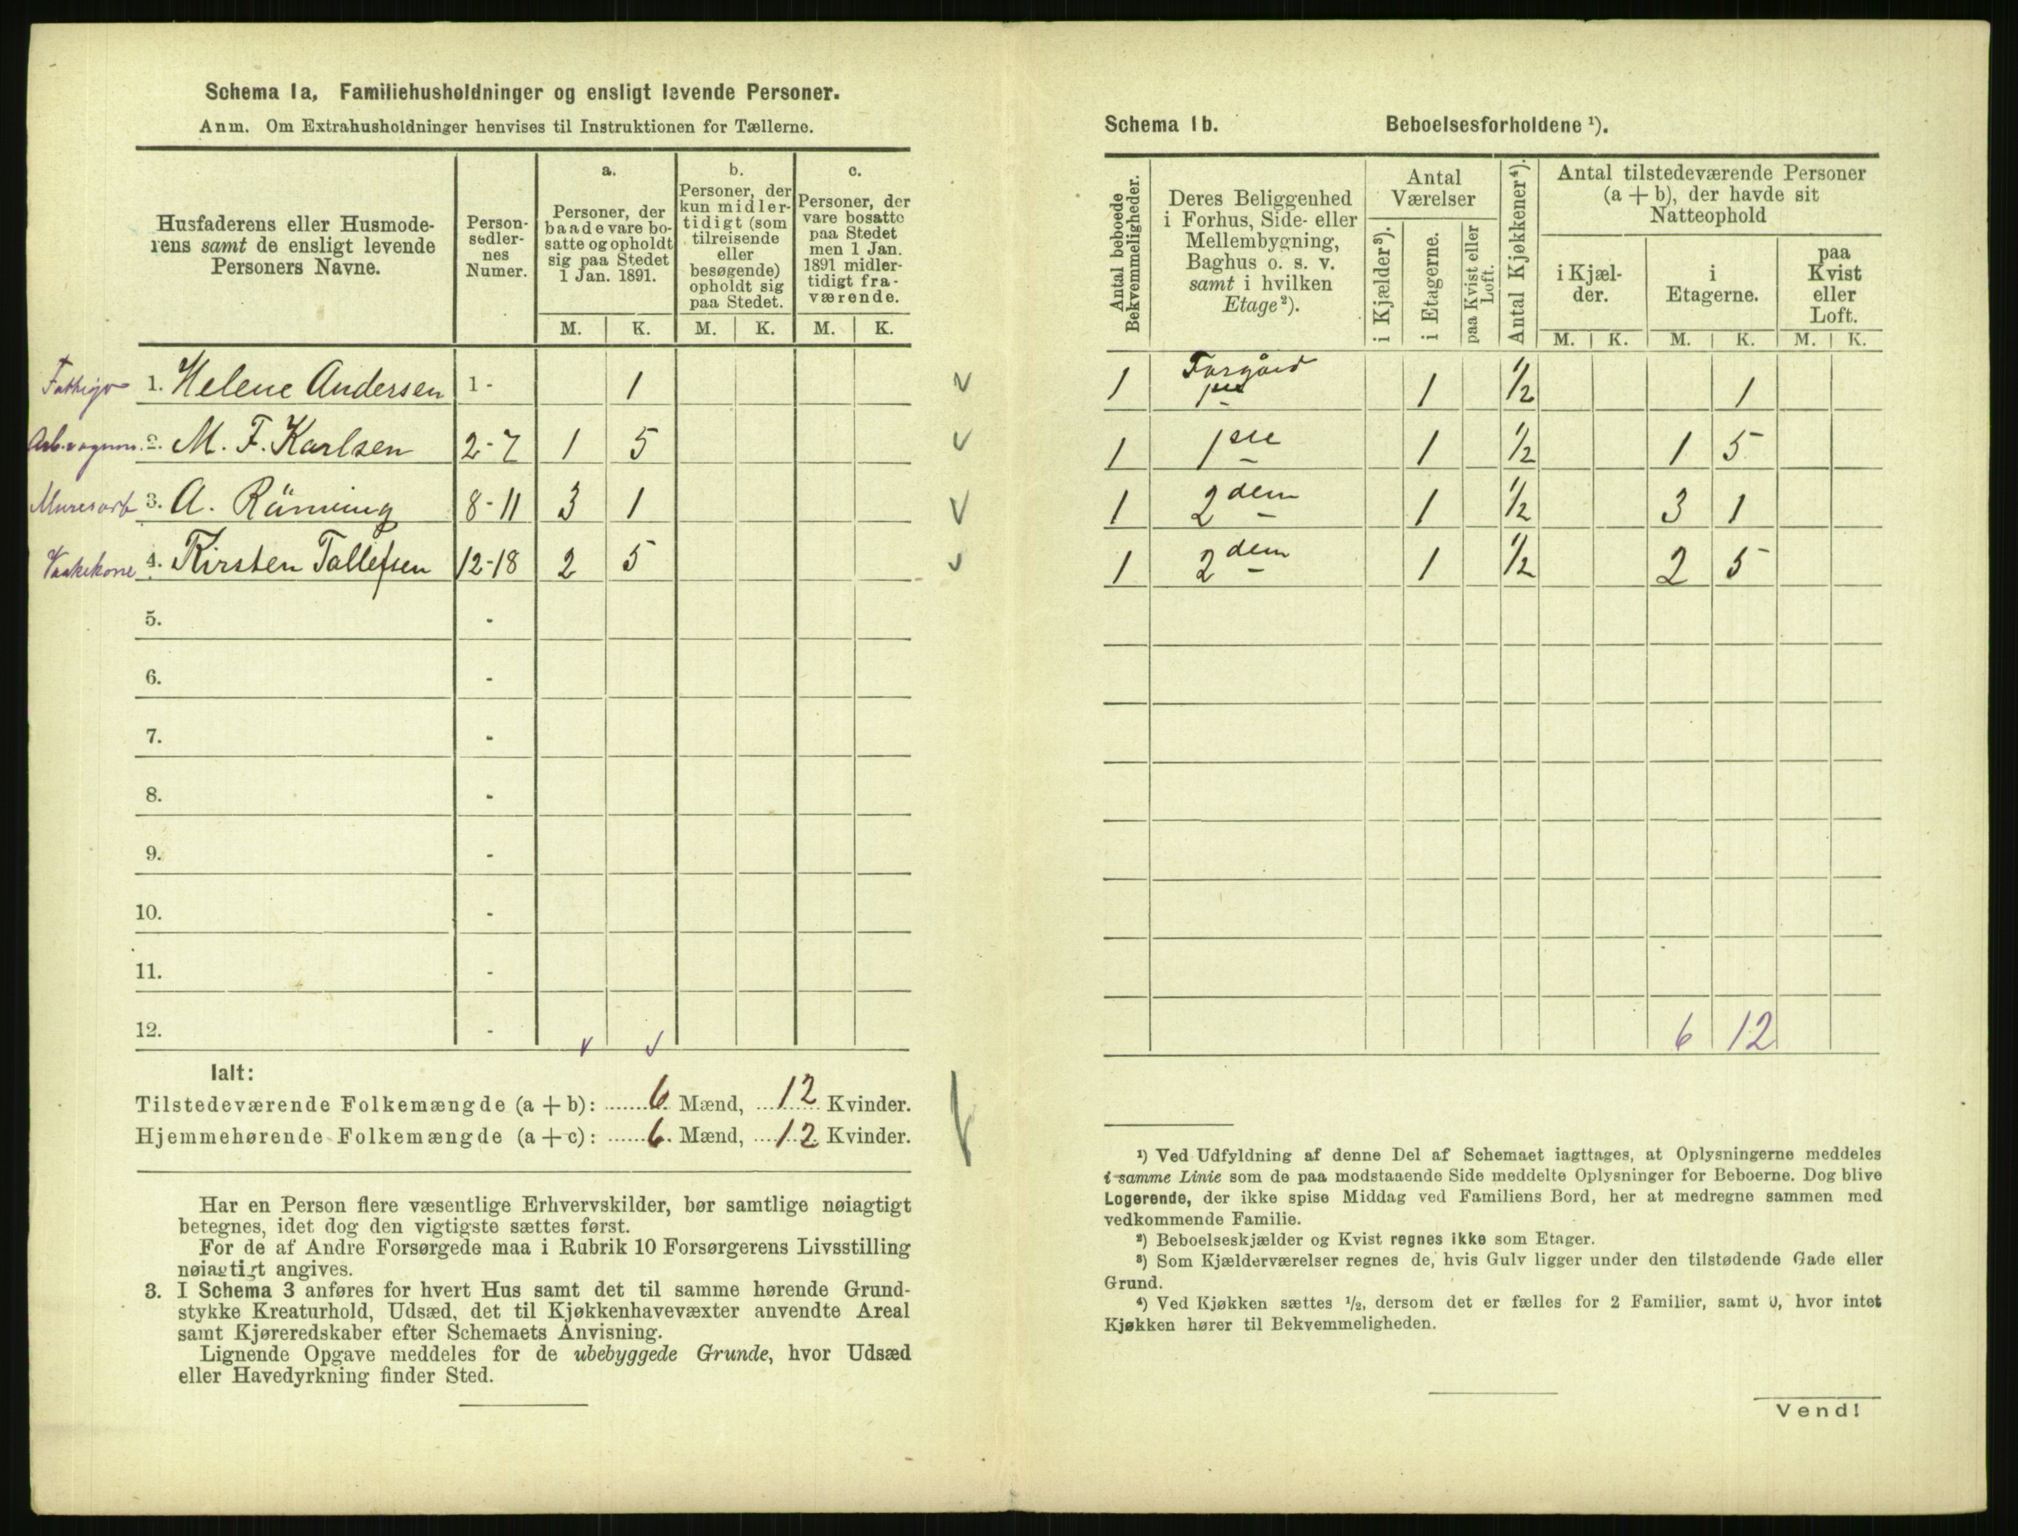 Schema 1a, Familiehusholdninger og ensligt levende Personer.
Anm. Om Extrahusholdninger henvises til Instruktionen for Tællerne.
Husfaderens eller Husmode-
rens samt de ensligt levende
Personers Navne.
Person-
sedler-
nes
Numer.
a.
Personer, der
baade vare bo-
satte og opholdt
sig paa Stedet
1 Jan. 1891.
b.
Personer, der
kun midler-
tidigt (som
tilreisende
eller
besøgende)
opholdt sig
paa Stedet.
c.
Personer, der
vare bosatte
paa Stedet
men 1 Jan.
1891 midler-
tidigt fra-
værende.
M. K. M. K. M. K.
1. Helene Andersen 1 - 1
2. M. F. Karlsen 2-7 1 5
Murerarb 3. A. Rönning 8-11 3 1
Vaskekone 4. Kirsten Tollefsen 12-18 2 5
5. -
6. -
7. -
8. -
9. -
10. -
11. -
12. -
Ialt:
Tilstedeværende Folkemængde (a + b): 6 Mænd, 12 Kvinder.
Hjemmehørende Folkemængde (a + c): 6 Mænd, 12 Kvinder.
Har en Person flere væsentlige Erhvervskilder, bør samtlige nøiagtigt
betegnes, idet dog den vigtigste sættes først.
For de af Andre Forsørgede maa i Rubrik 10 Forsørgerens Livsstilling
nøiagtigt angives.
3. I Schema 3 anføres for hvert Hus samt det til samme hørende Grund-
stykke Kreaturhold, Udsæd, det til Kjøkkenhavevæxter anvendte Areal
samt Kjøreredskaber efter Schemaets Anvisning.
Lignende Opgave meddeles for de ubebyggede Grunde, hvor Udsæd
eller Havedyrkning finder Sted.
Schema 1b. Beboelsesforholdene ¹).
Antal beboede
Bekvemmeligheder.
Deres Beliggenhed
i Forhus, Side- eller
Mellembygning,
Baghus o. s. v.
samt i hvilken
Etage²).
Antal
Værelser
i Kjælder³).
i Etagerne.
paa Kvist eller
Loft.
Antal Kjøkkener⁴).
Antal tilstedeværende Personer
(a + b), der havde sit
Natteophold
i Kjæl-
der.
i
Etagerne.
paa
Kvist
eller
Loft.
M. K. M. K. M. K.
1 Forgård 1ste 1 ½ 1
1 1ste 1 ½ 1 5
1 2den 1 ½ 3 1
1 2den 1 ½ 2 5
6 12
¹) Ved Udfyldning af denne Del af Schemaet iagttages, at Oplysningerne meddeles
i samme Linie som de paa modstaaende Side meddelte Oplysninger for Beboerne. Dog blive
Logerende, der ikke spise Middag ved Familiens Bord, her at medregne sammen med
vedkommende Familie.
²) Beboelseskjælder og Kvist regnes ikke som Etager.
³) Som Kjælderværelser regnes de, hvis Gulv ligger under den tilstødende Gade eller
Grund.
⁴) Ved Kjøkken sættes ½, dersom det er fælles for 2 Familier, samt 0, hvor intet
Kjøkken hører til Bekvemmeligheden.
Vend!